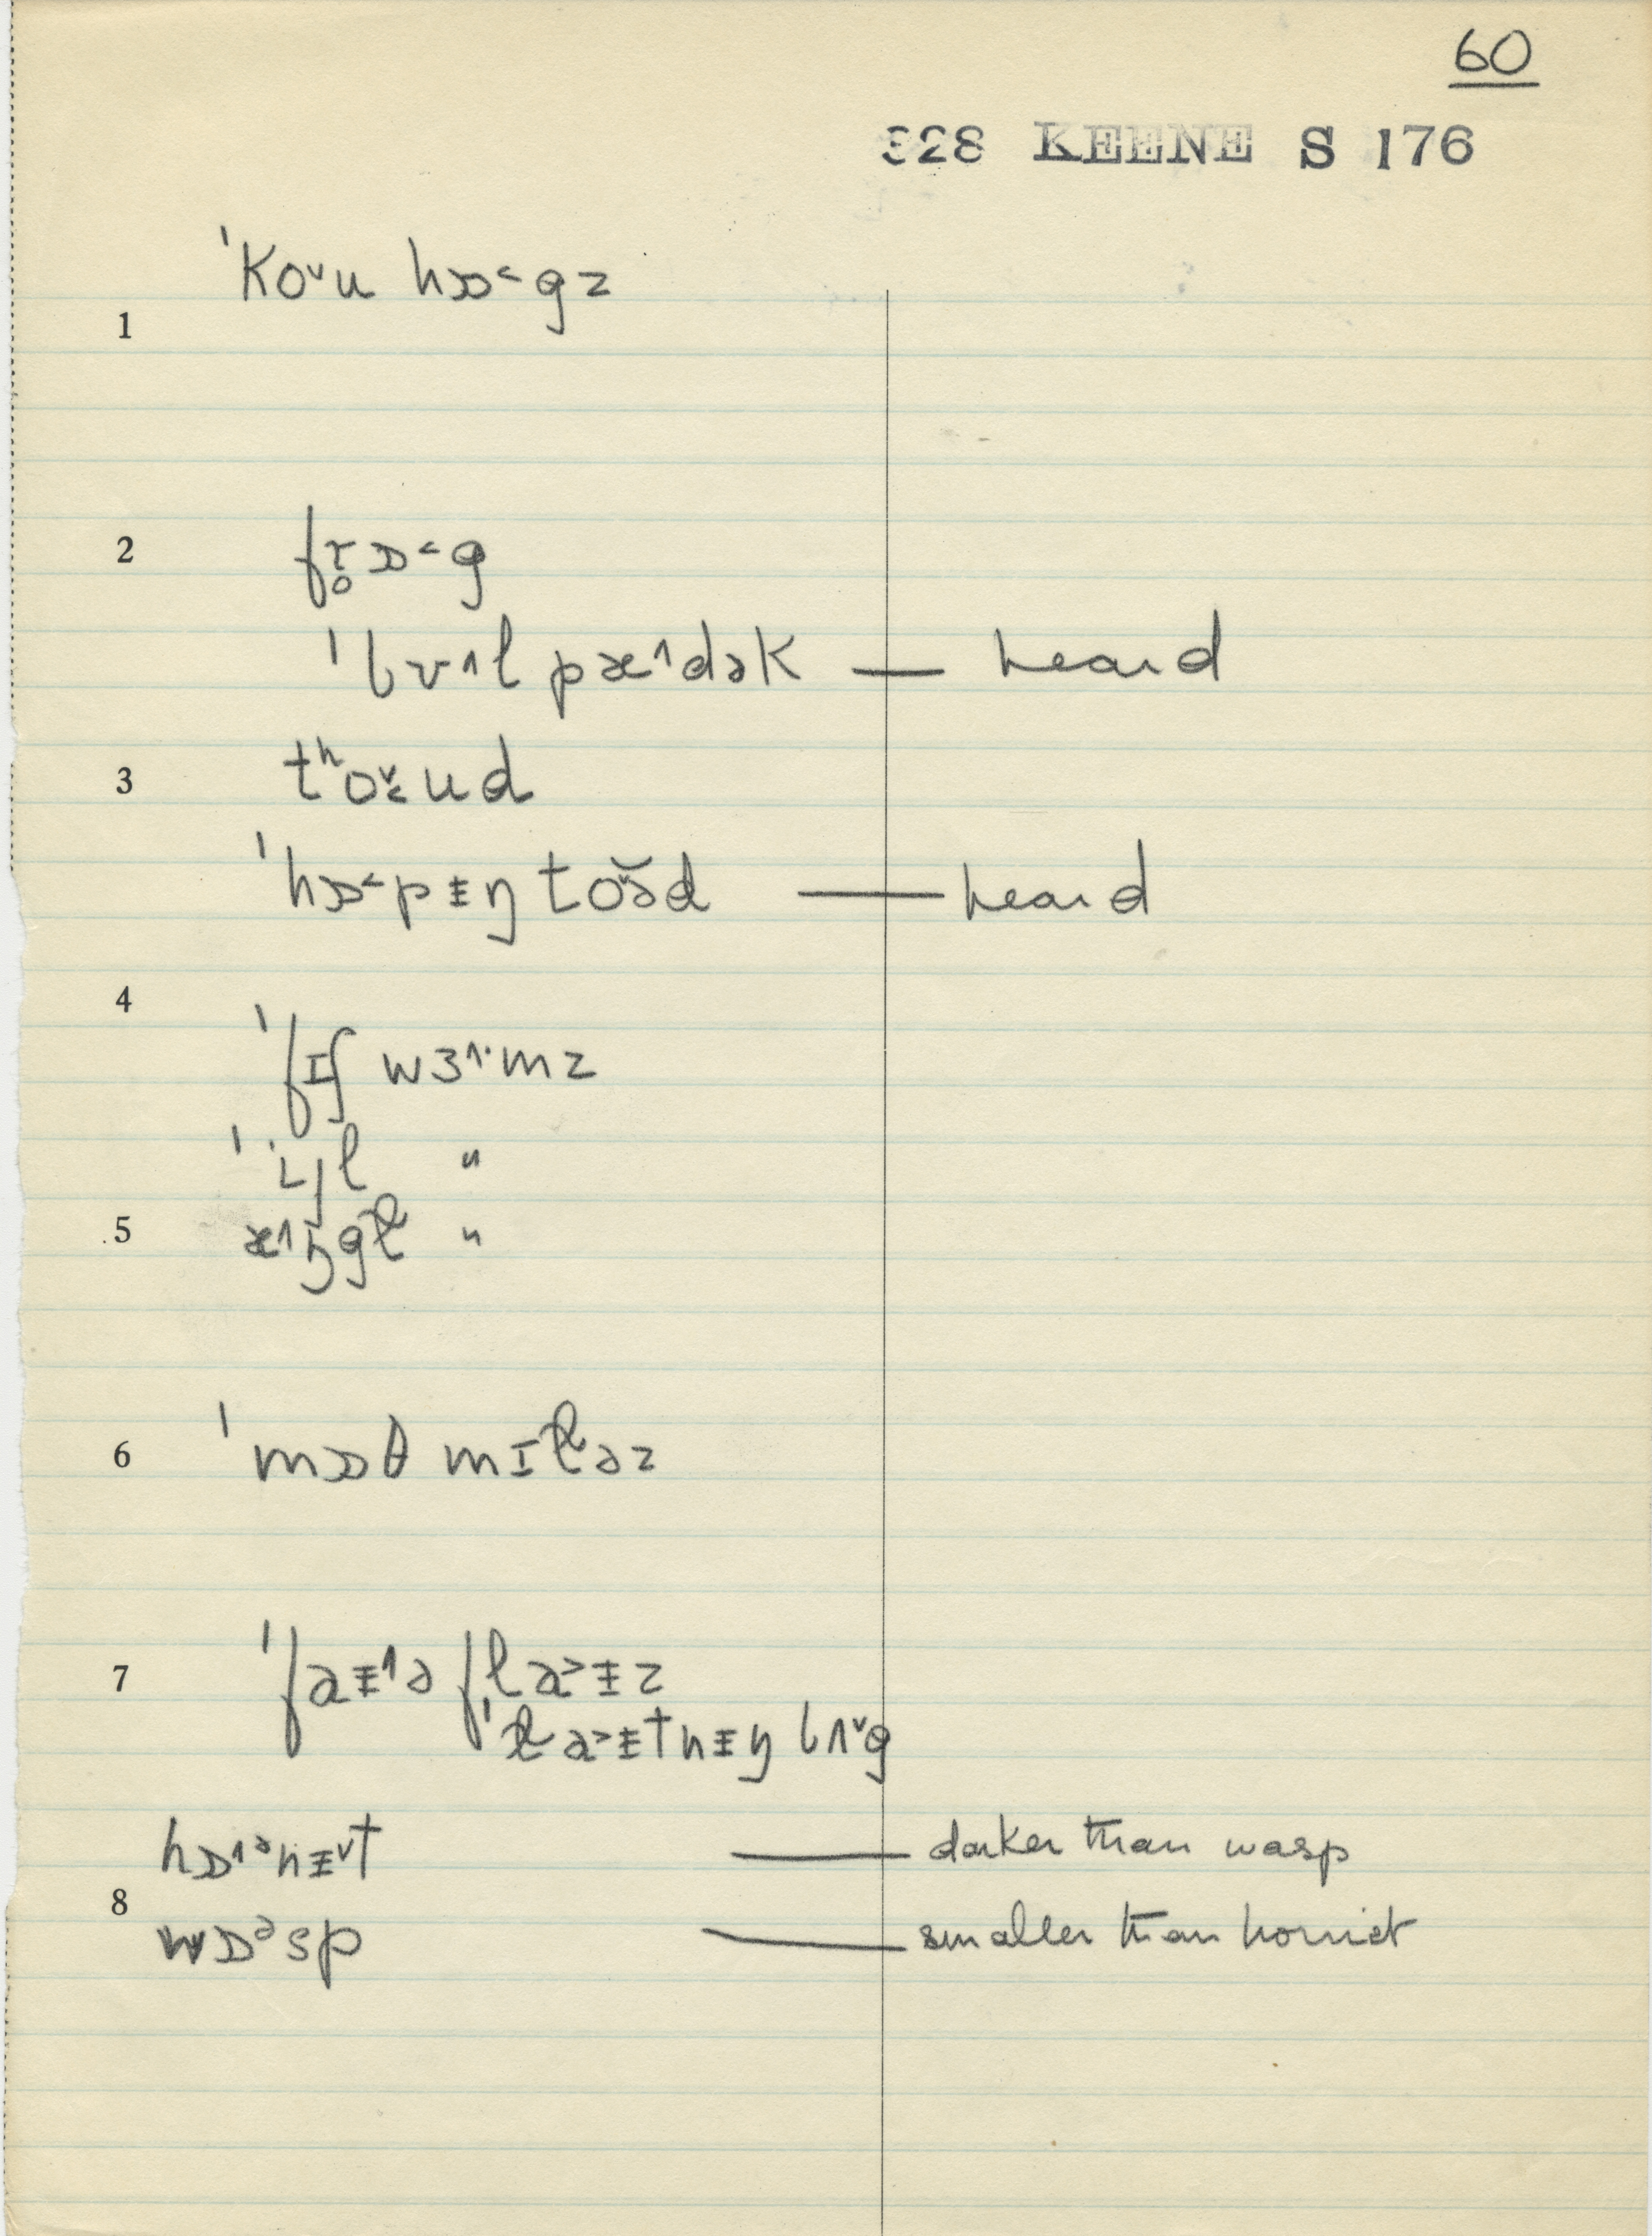 60
328 KEENE S 176
1 ˈko˅u hɒ˂gz
2 fr̥ɒ˂g
ˈbʊ˄l pæ˄dək — heard
3 tʰo˅˂ud
ˈhɒ˂pᵻŋ to˅əd — heard
4
ˈfɪʃ wɜ˄·mz
ˈiʲl "
5 æ˄ŋgɫ "
6 ˈmɒθ mɪɫəz
7 ˈfaᵻ˄ə fla˃ᵻz
ˈɫa˃ᵻtnᵻŋ bʌ˅g
hɒ˄ᵊnᵻ˅t — darker than wasp
8 wɒᵊsp — smaller than hornet